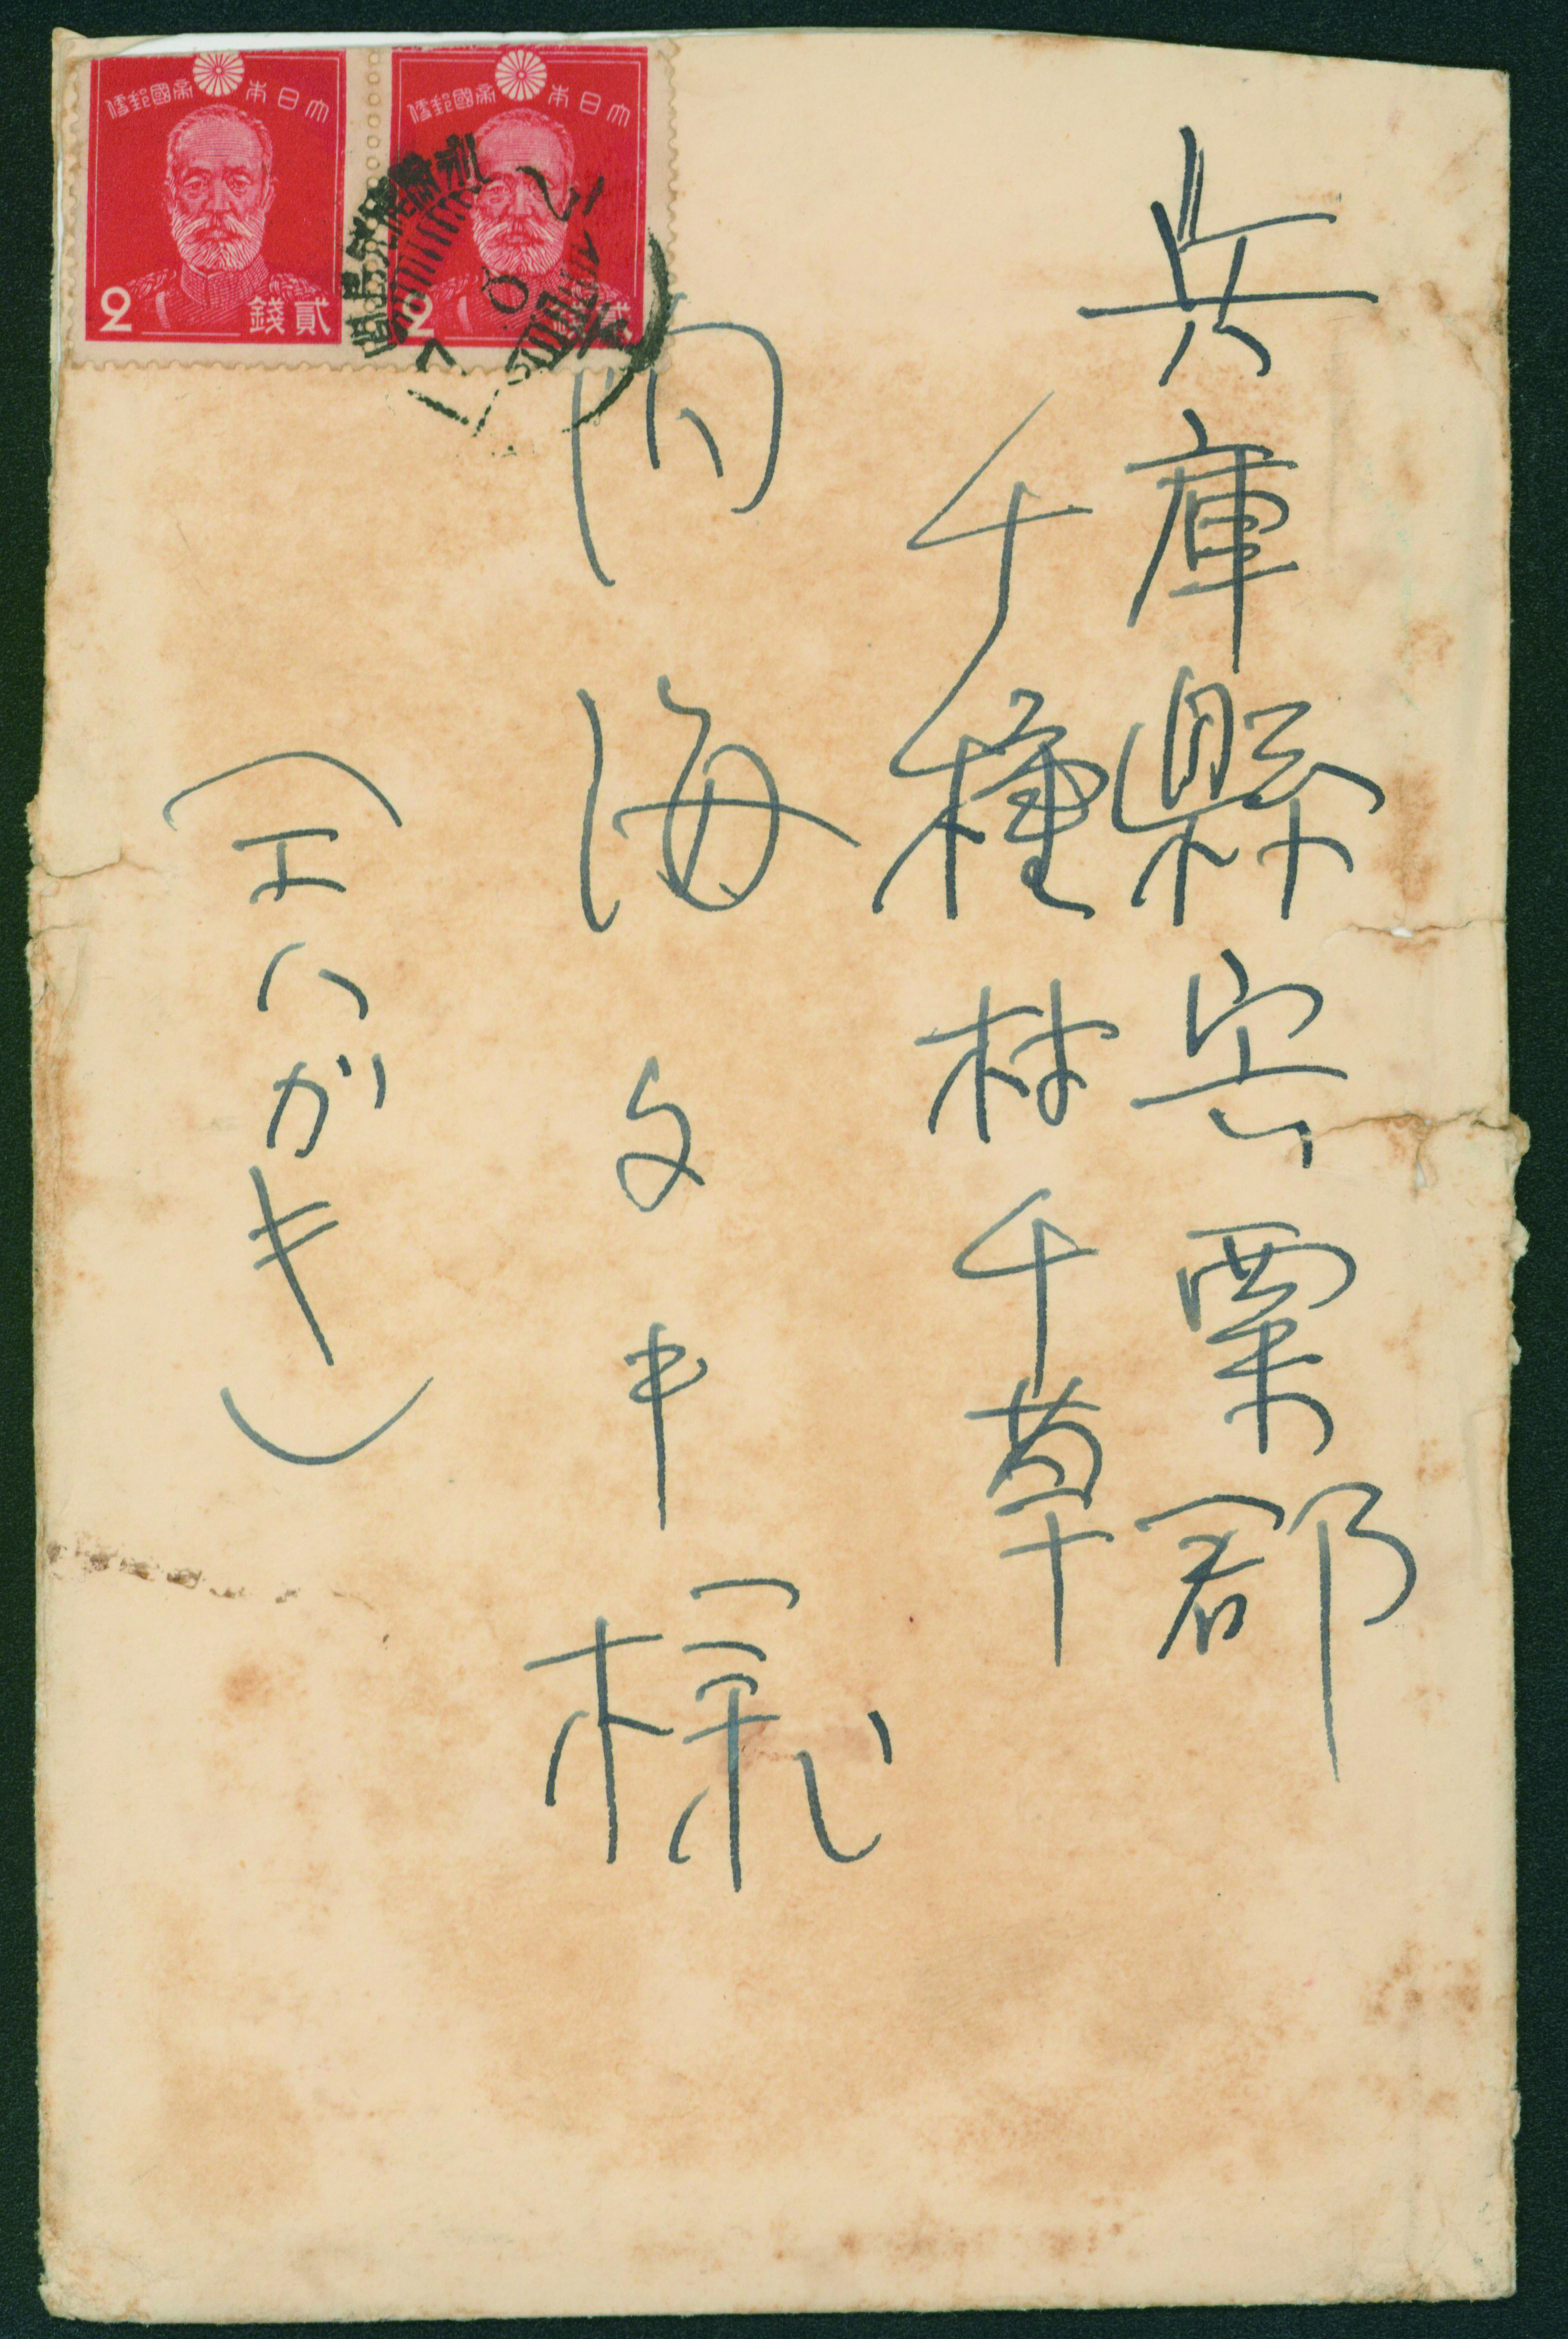 兵庫縣宍粟郡
千種村千草
内海文申様
(エハガキ)
大日本帝國郵便
2 貳錢
大日本帝國郵便
2 貳錢